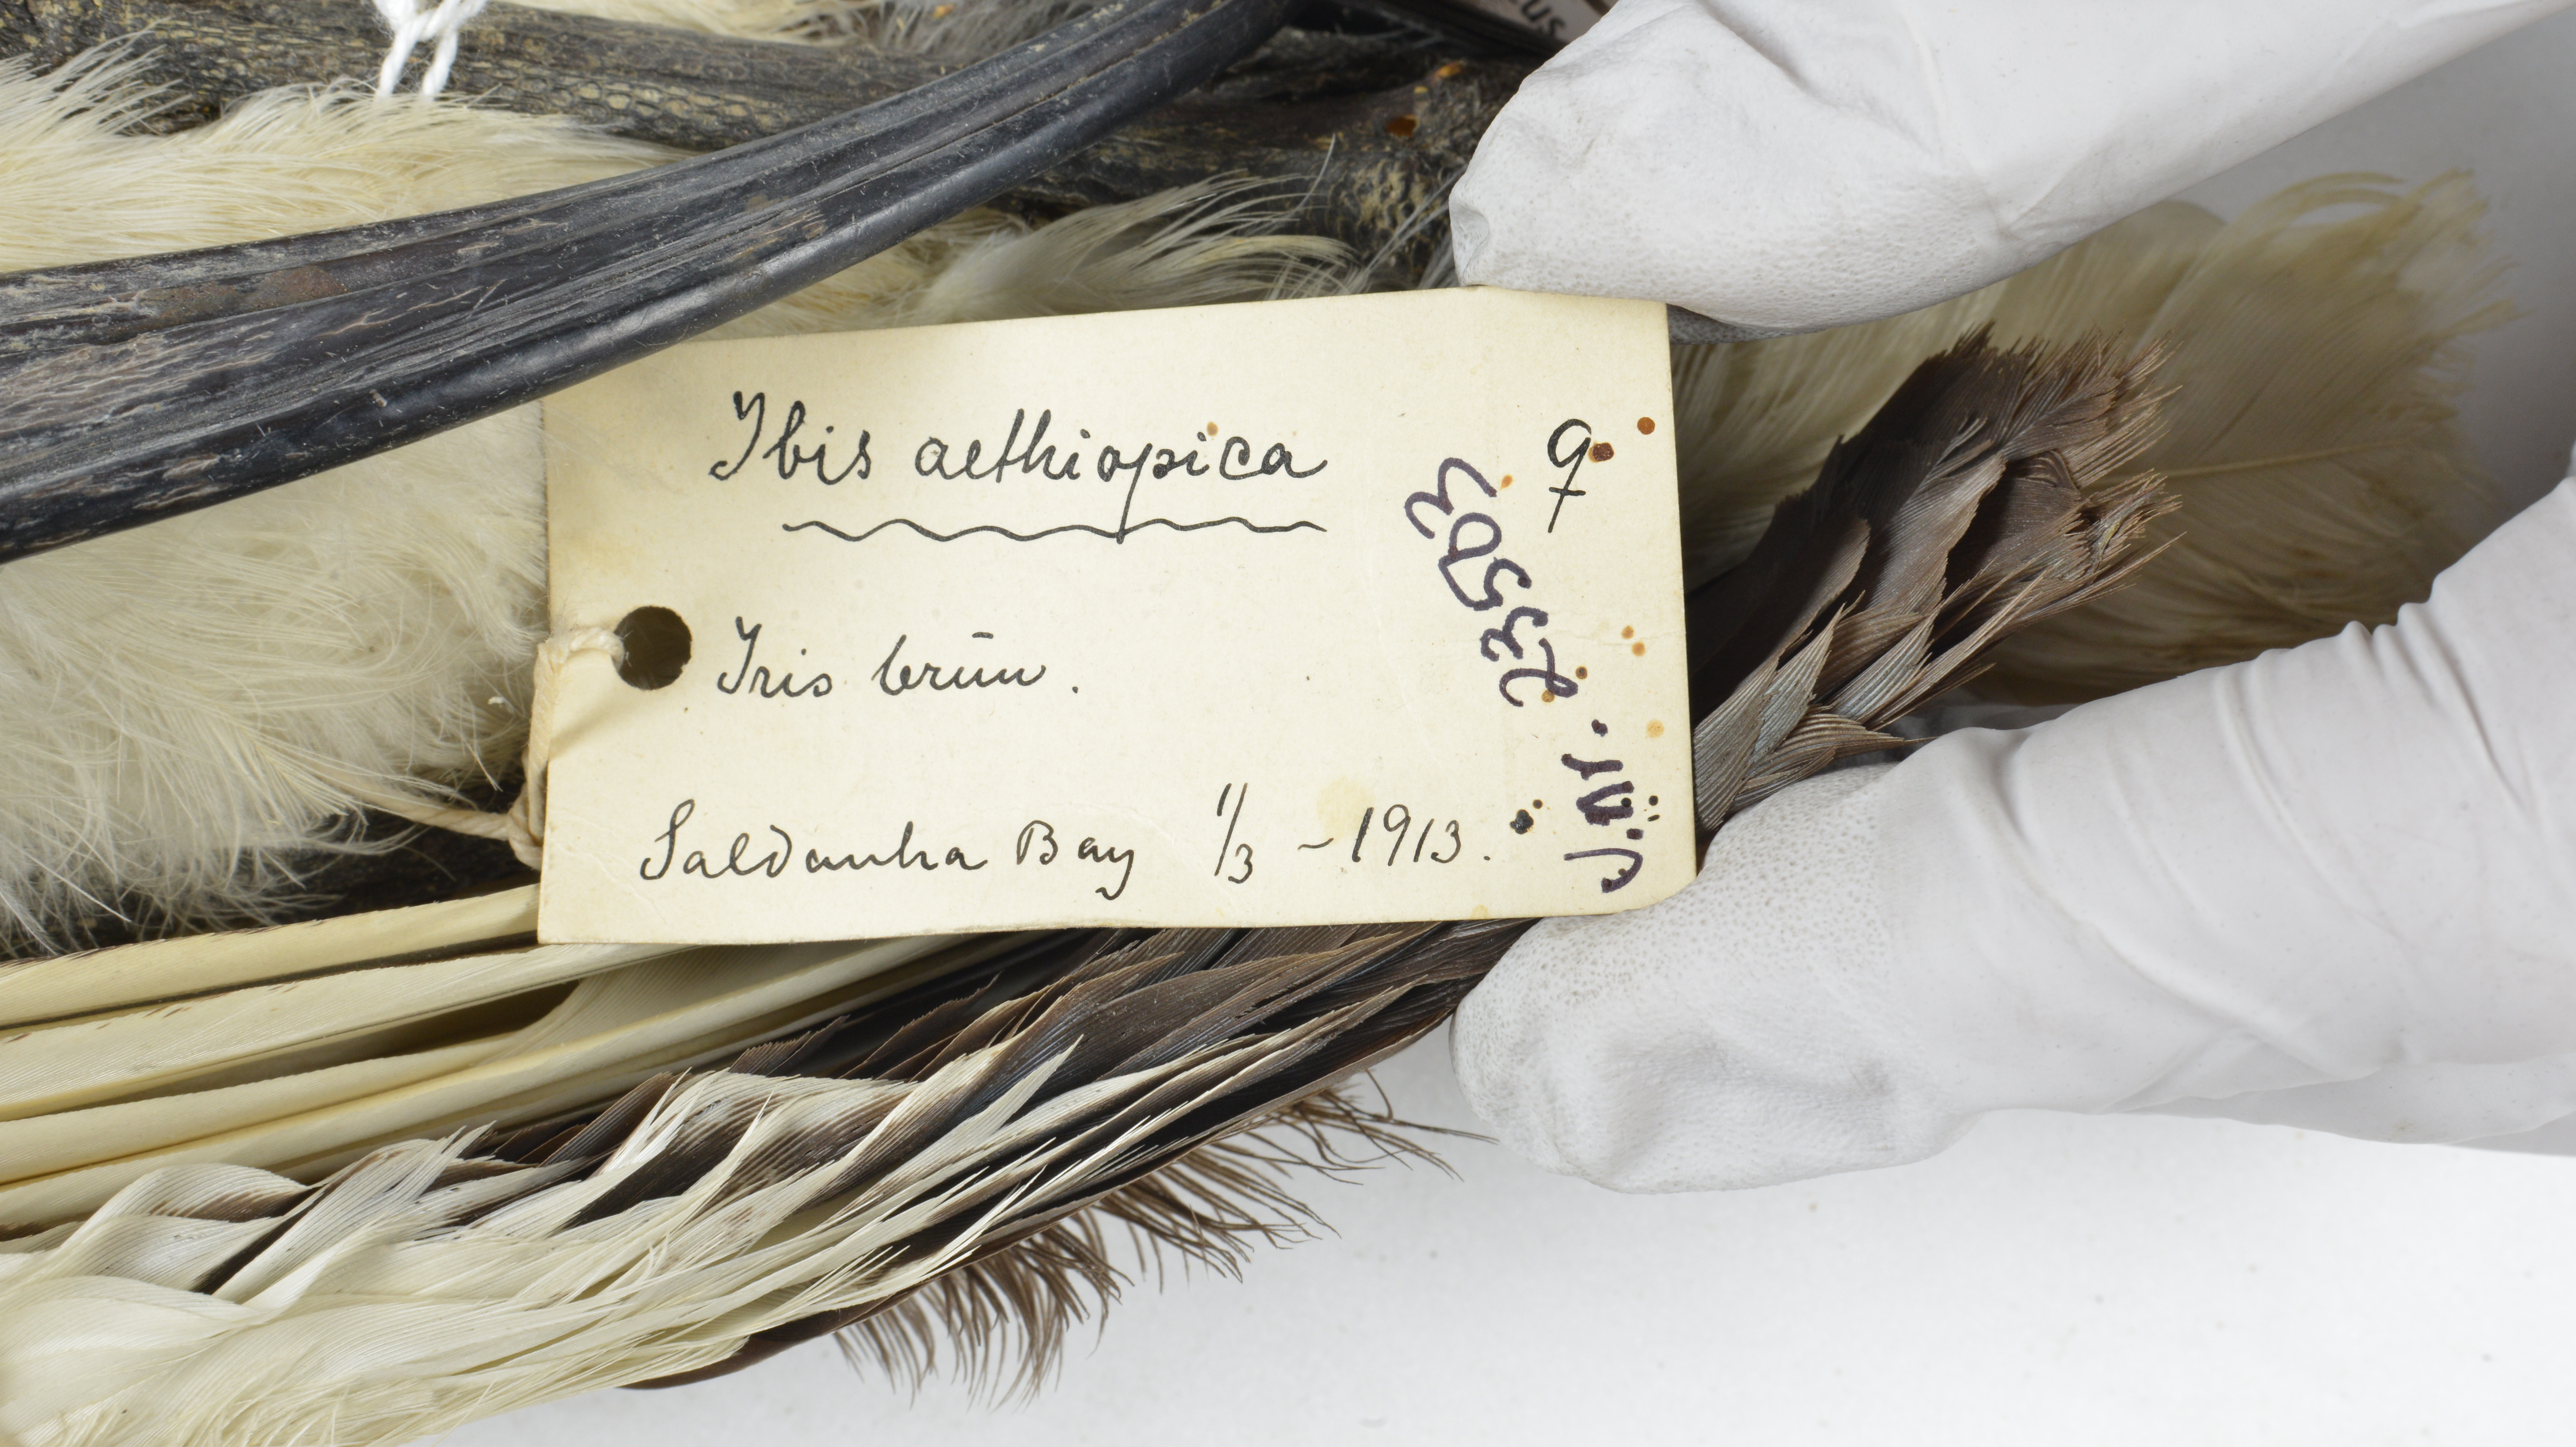 Ibis aethiopica ♀
Iris brūn.
Saldanha Bay 1/3 - 1913.
J.Nr. 23503
us